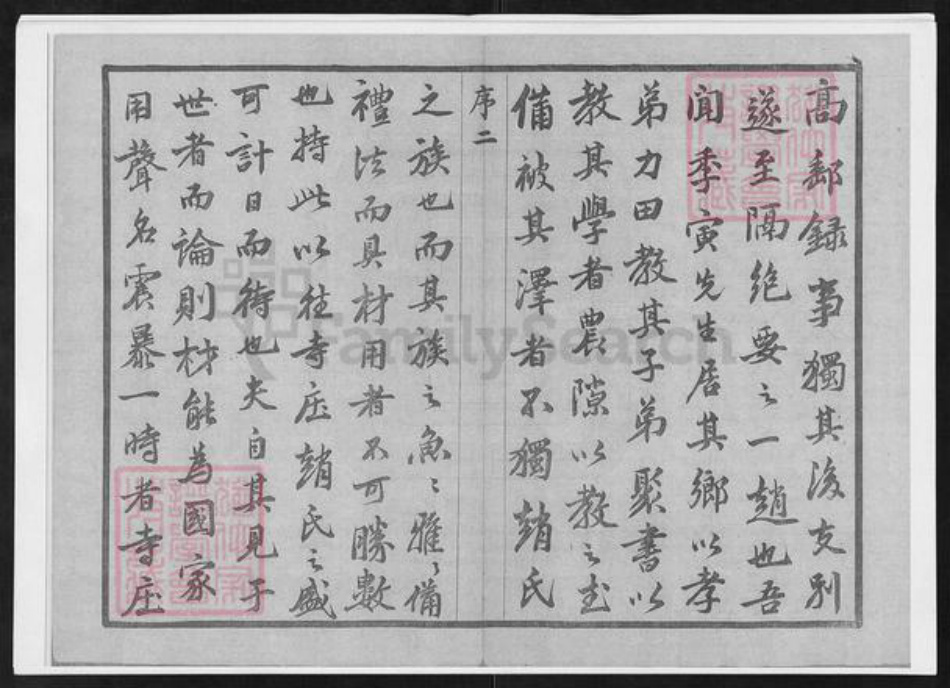 高郵録事獨其後支別
遂至隔絶要之一趙也吾
聞季寅先生居其鄉以孝
弟力田教其子弟聚書以
教其學者農隙以教之武
備被其澤者不獨趙氏
序二
之族也而其族之魚〻雅〻備
禮法而具材用者不可勝數
也持此以往寺庄趙氏之盛
可計日而待也夫自其見于
世者而論則材能為國家
用聲名震暴一時者寺庄
FamilySearch